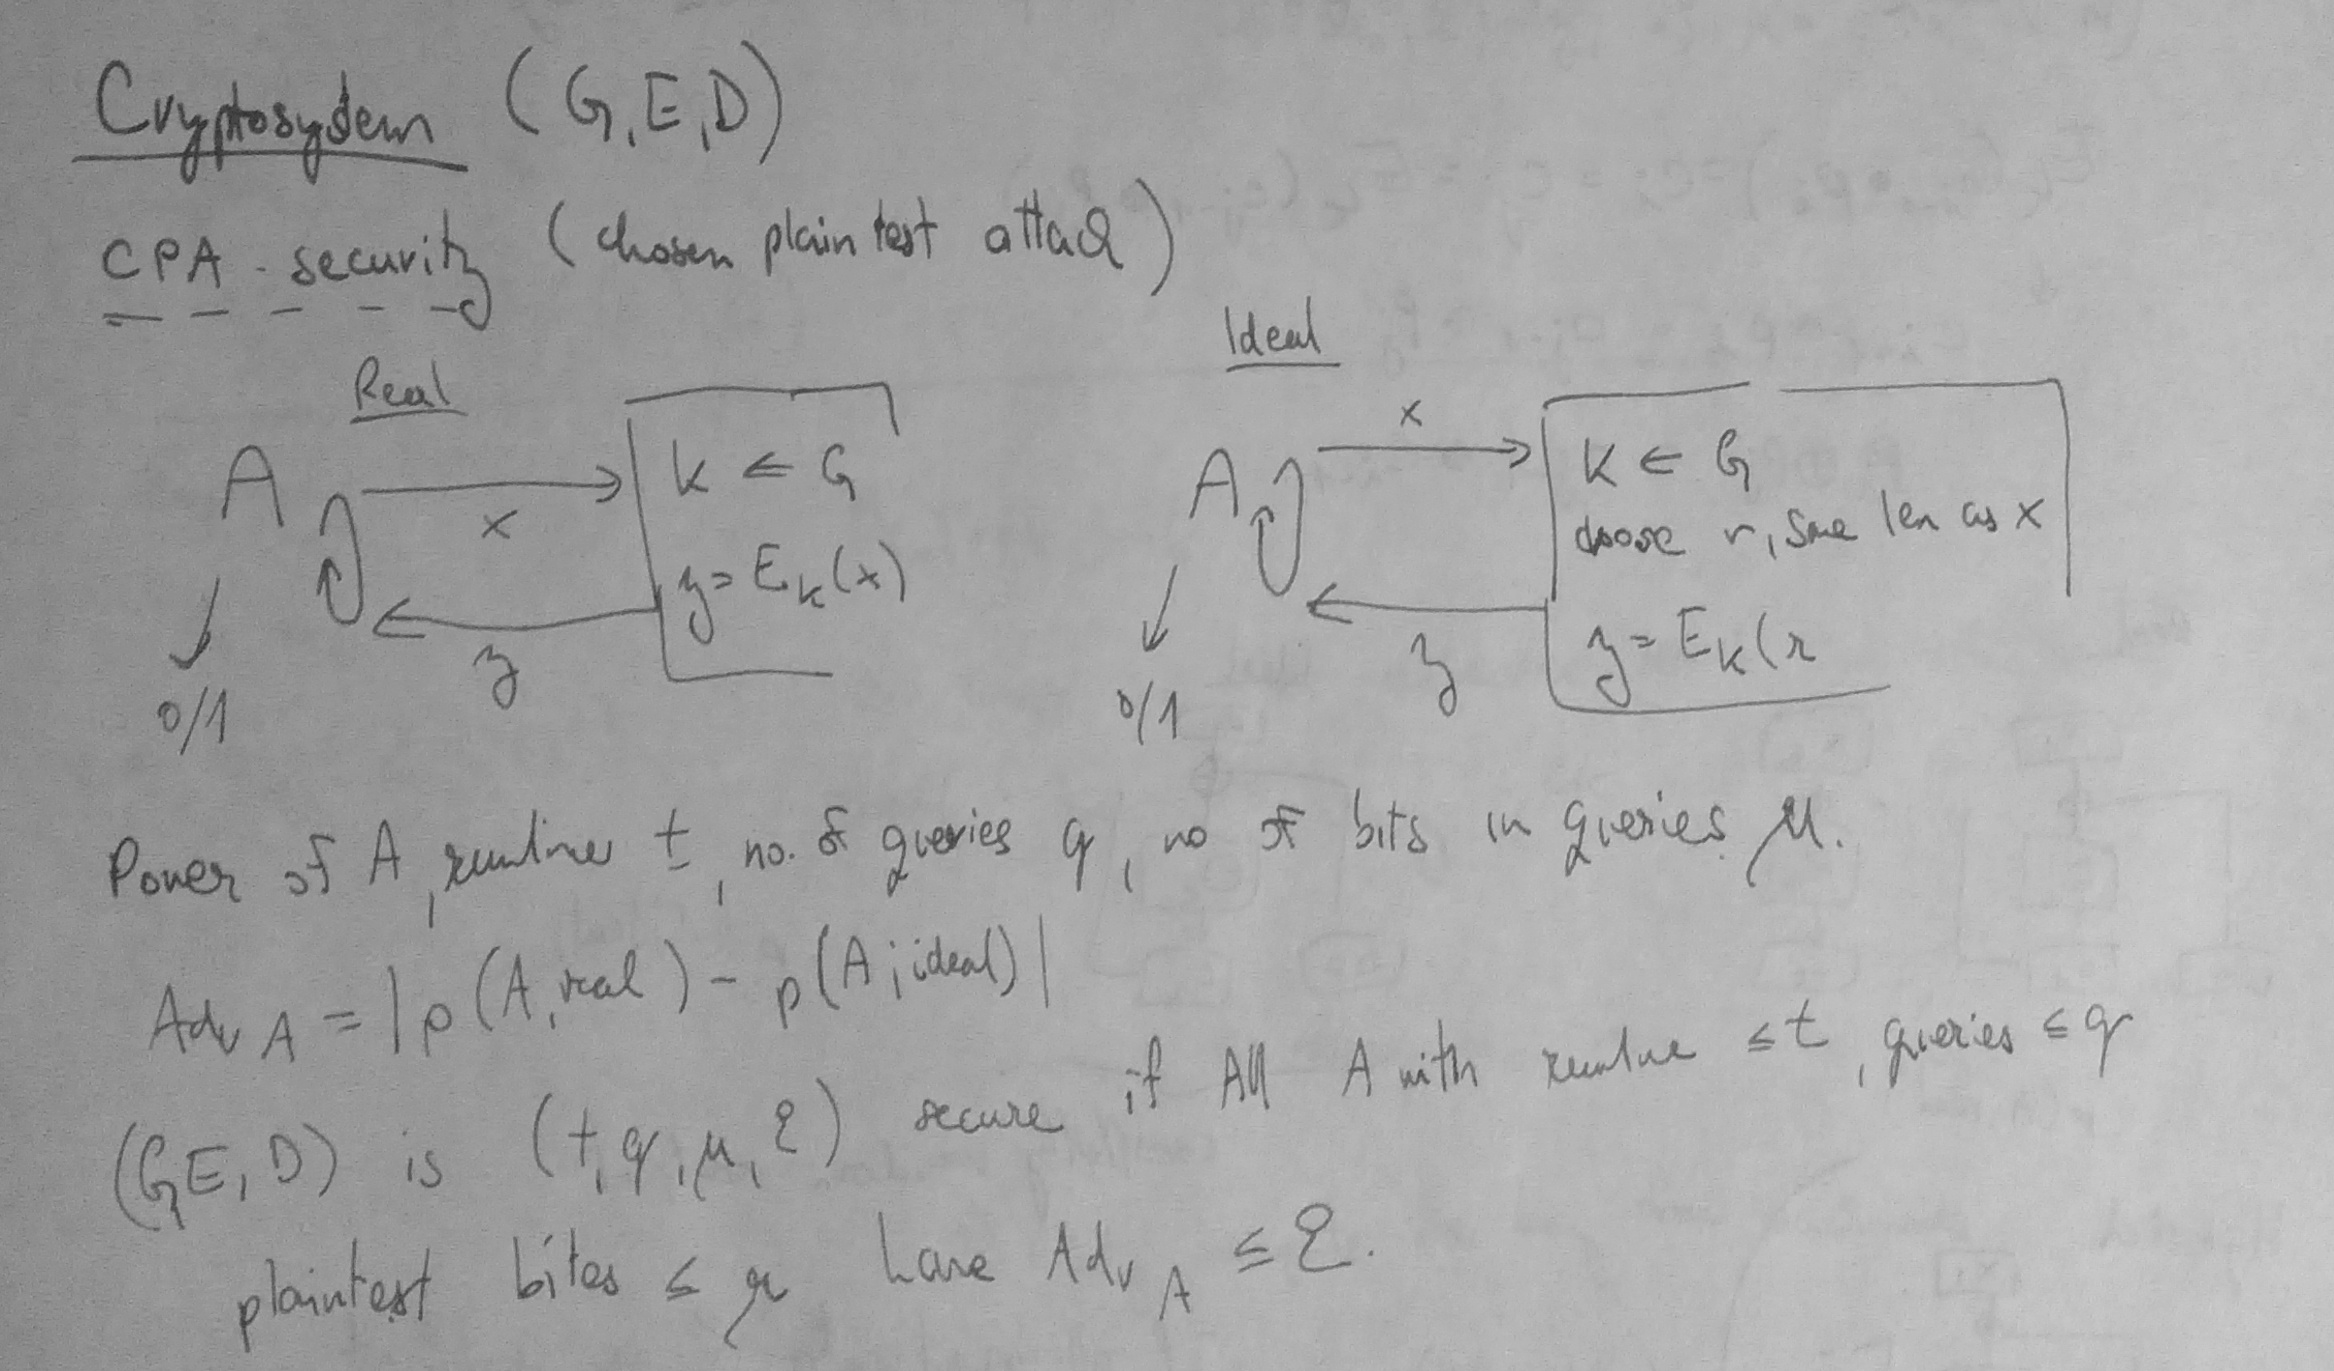 Cryptosystem (G,E,D)
CPA-security (chosen plaintext attack)
Real
A
x
k ← G
y = E_k(x)
y
0/1
Ideal
A
x
k ← G
choose r, same len as x
y = E_k(r
y
0/1
Power of A, runtime t, no. of queries q, no of bits in queries μ.
Adv_A = |p(A, real) - p(A; ideal)|
(G,E,D) is (t, q, μ, ε) secure if All A with runtime ≤ t, queries ≤ q
plaintext bites ≤ μ have Adv_A ≤ ε.